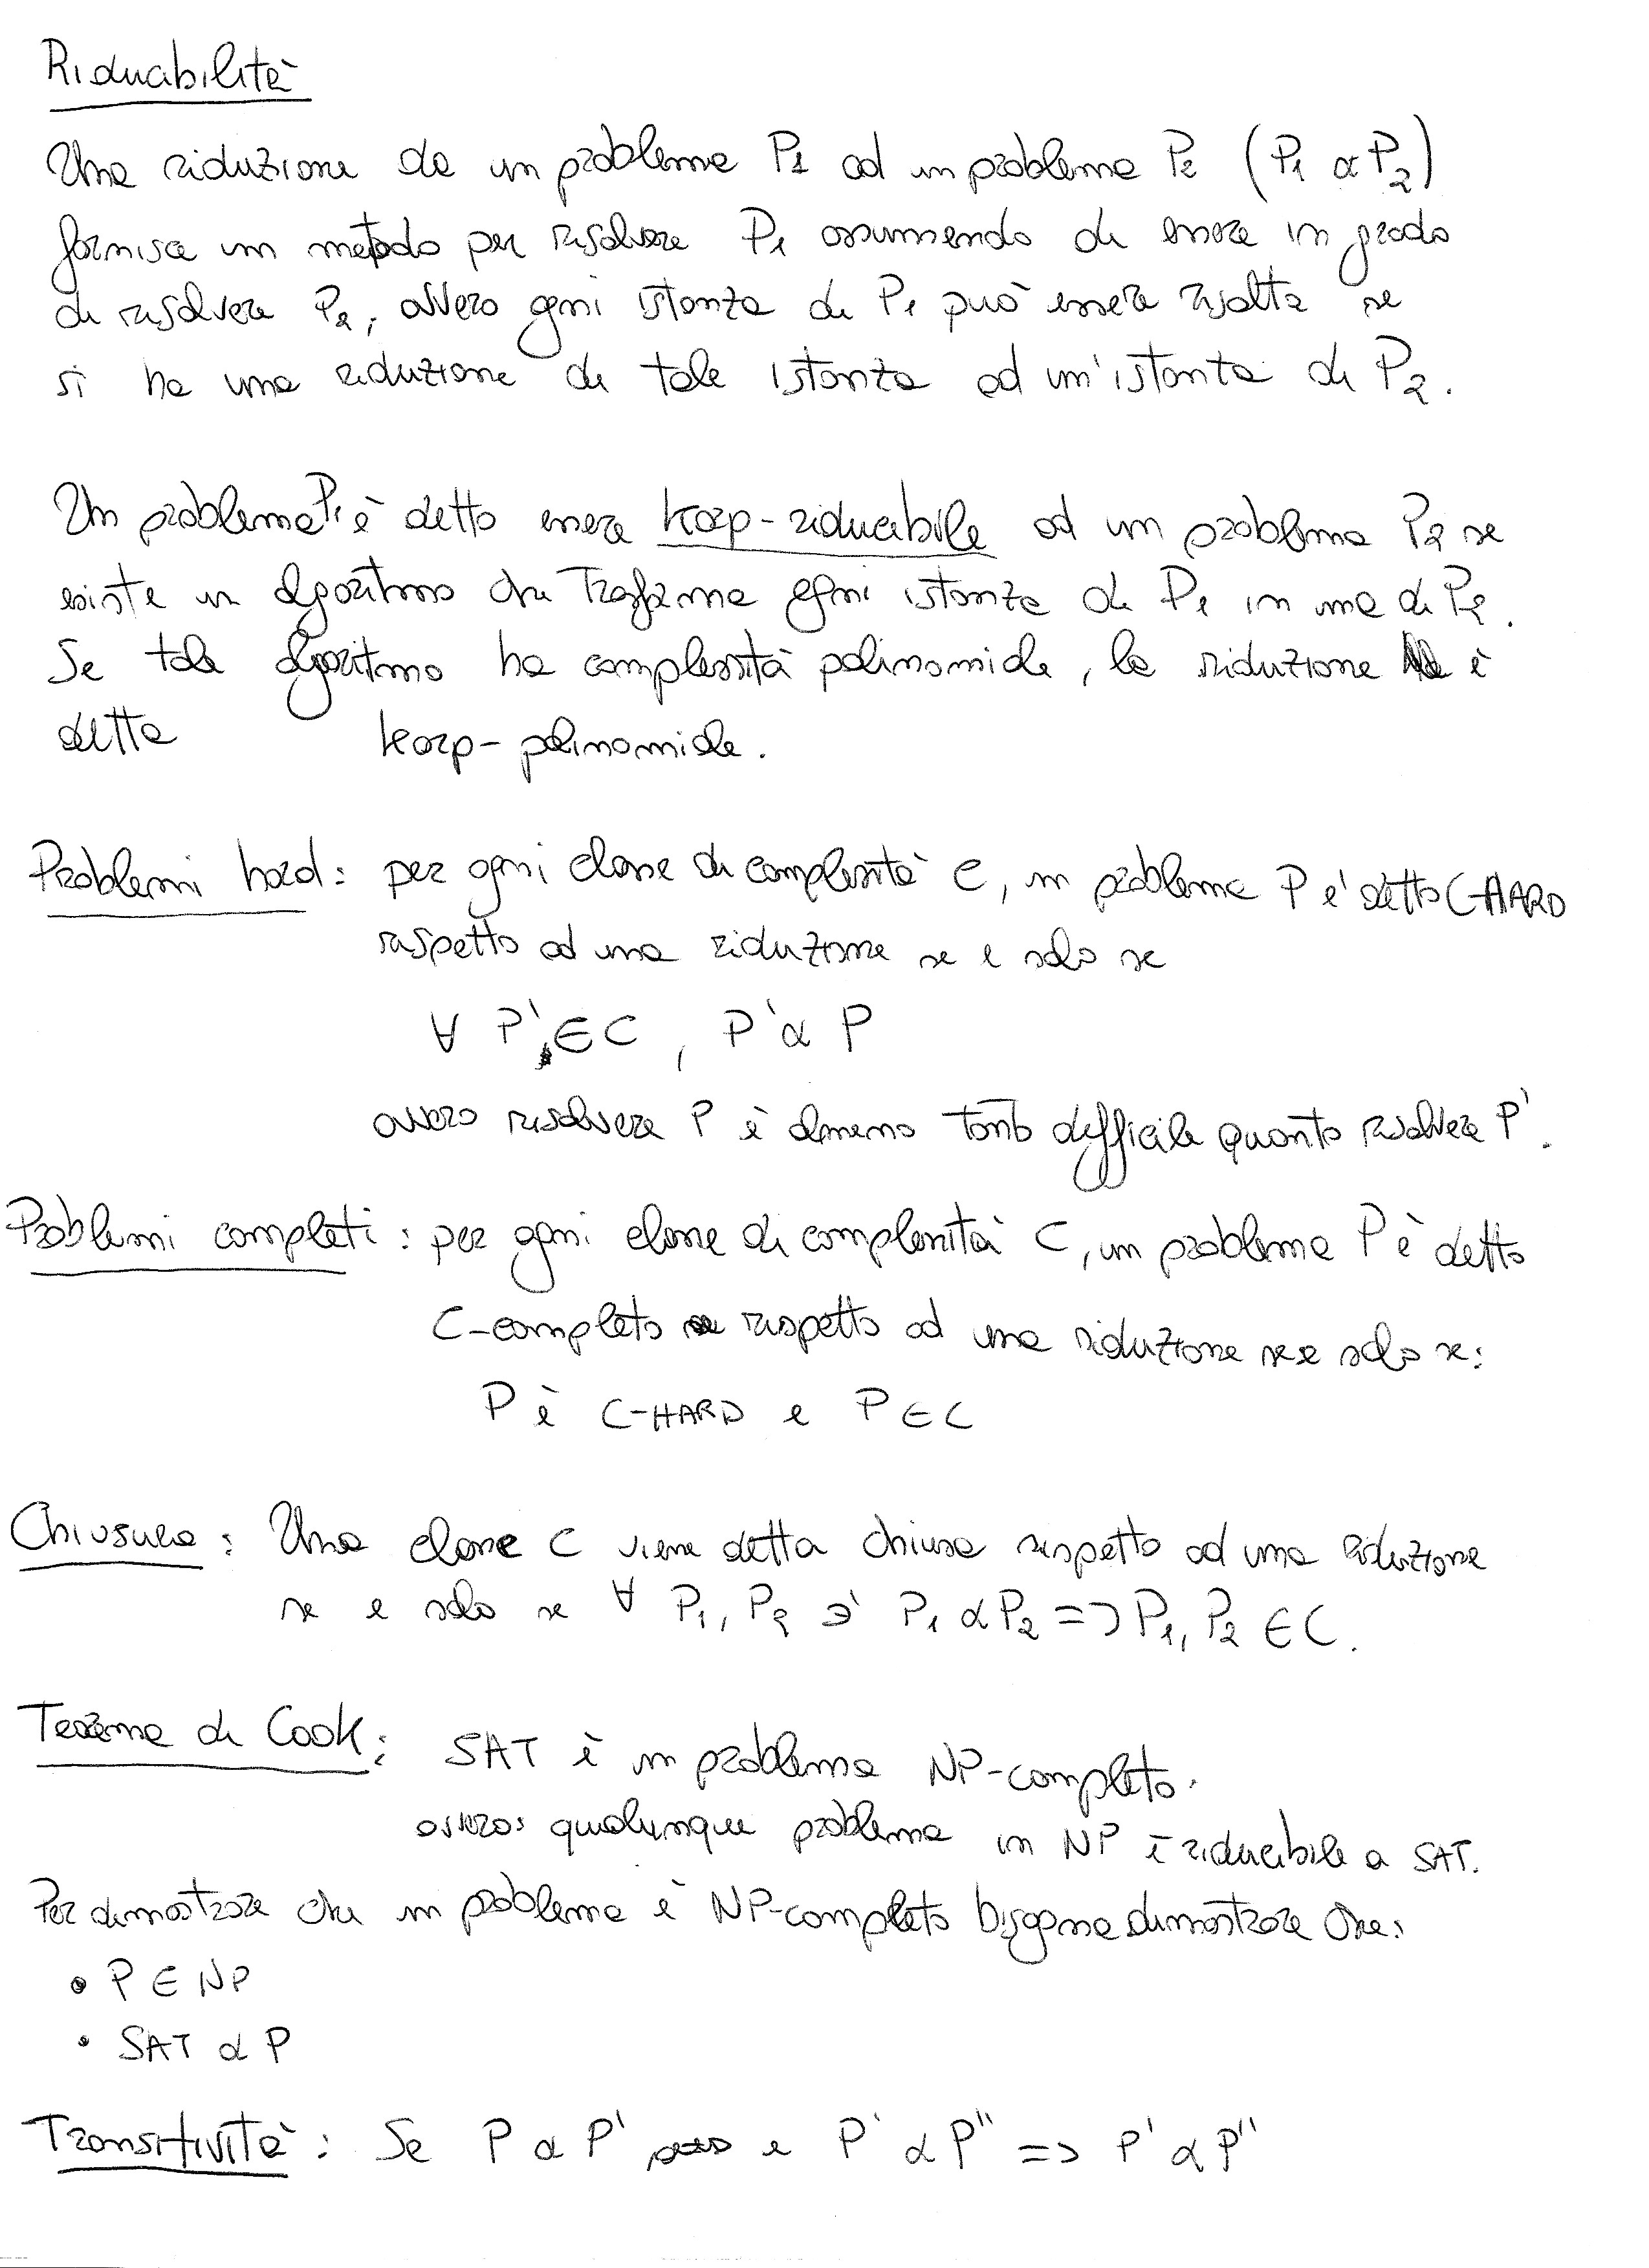 Riducibilità
Una riduzione da un problema P1 ad un problema P2 (P1 α P2)
fornisce un metodo per risolvere P1 assumendo di essere in grado
di risolvere P2, ovvero ogni istanza di P1 può essere risolta se
si ha una riduzione di tale istanza ad un'istanza di P2.
Un problema P1 è detto essere karp-riducibile ad un problema P2 se
esiste un algoritmo che trasforma ogni istanza di P1 in una di P2.
Se tale algoritmo ha complessità polinomiale, la riduzione è
detta karp-polinomiale.
Problemi hard: per ogni classe di complessità C, un problema P è detto C-HARD
rispetto ad una riduzione se e solo se
∀ P' ∈ C, P' α P
ovvero risolvere P è almeno tanto difficile quanto risolvere P'.
Problemi completi: per ogni classe di complessità C, un problema P è detto
C-completo rispetto ad una riduzione se e solo se:
P è C-HARD e P ∈ C
Chiusura: Una classe C viene detta chiusa rispetto ad una riduzione
se e solo se ∀ P1, P2 ∋' P1 α P2 => P1, P2 ∈ C.
Teorema di Cook: SAT è un problema NP-completo.
ovvero: qualunque problema in NP è riducibile a SAT.
Per dimostrare che un problema è NP-completo bisogna dimostrare che:
• P ∈ NP
• SAT α P
Transitività: Se P α P' e P' α P'' => P' α P''